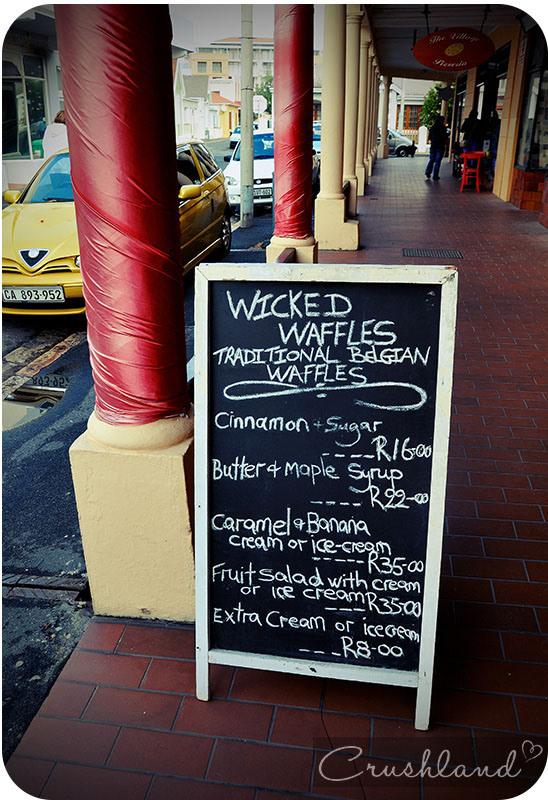 The Village
CA 893·952
WICKED
WAFFLES
TRADITIONAL BELGIAN
WAFFLES
Cinnamon + Sugar
---- R16-00
Butter + Maple Syrup
---- R22-00
Caramel + Banana
cream or ice-cream
----- R35-00
Fruit Salad with cream
or ice cream --- R35.00
Extra Cream or icecream
--- R8-00
Crushland